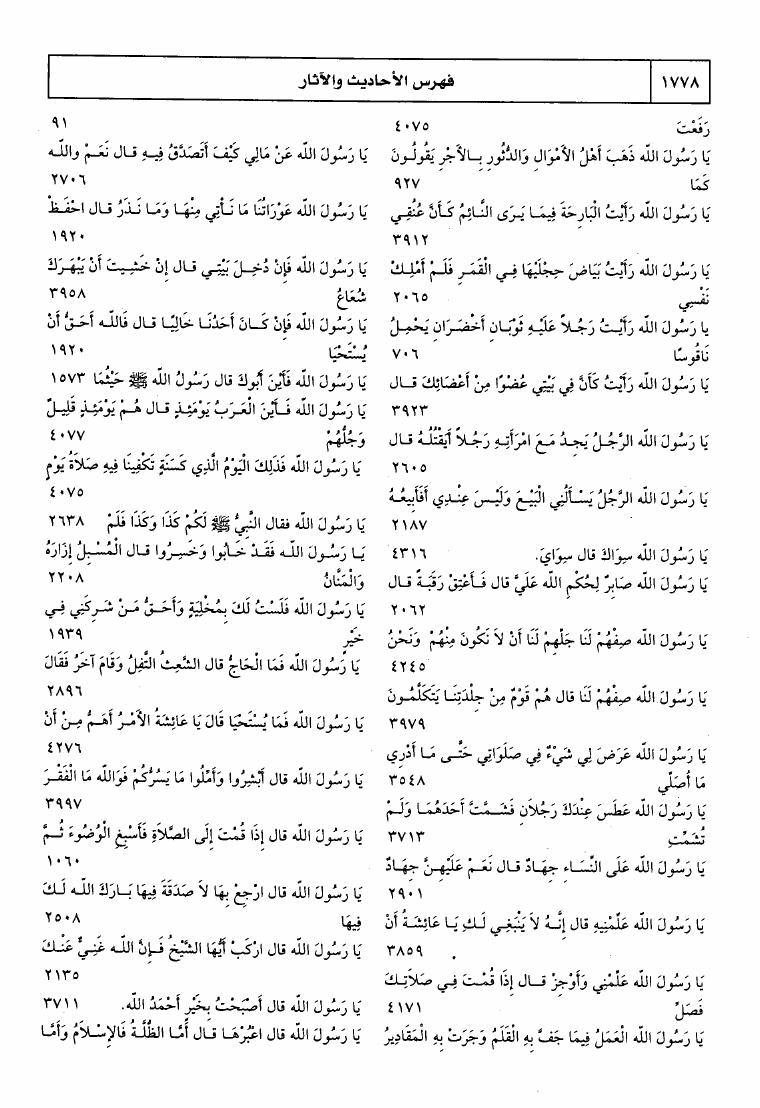 ١٧٧٨
فهرس الأحاديث والآثار
رَفَعْتَ ٤٠٧٥
يَا رَسُولَ اللَّه ذَهَبَ أَهْلُ الأَمْوَالِ وَالدُّثُورِ بِالأَجْرِ يَقُولُونَ
كَمَا ٩٢٧
يَا رَسُولَ اللَّه رَأَيْتُ الْبَارِحَةَ فِيمَا يَرَى النَّائِمُ كَأَنَّ عُنُقِي
٣٩١٢
يَا رَسُولَ اللَّه رَأَيْتُ بَيَاضَ حِجْلَيْهَا فِي الْقَمَرِ فَلَمْ أَمْلِكْ
نَفْسِي ٢٠٦٥
يا رَسُولَ اللَّه رَأَيْتُ رَجُلاً عَلَيْهِ ثَوْبَانِ أَخْضَرَانِ يَحْمِلُ
نَاقُوسًا ٧٠٦
يَا رَسُولَ اللَّه رَأَيْتُ كَأَنَّ فِي بَيْتِي عُضْوًا مِنْ أَعْضَائِكَ قال
٣٩٢٣
يَا رَسُولَ اللَّه الرَّجُلُ يَجِدُ مَعَ امْرَأَتِهِ رَجُلاً أَيَقْتُلُهُ قال
٢٦٠٥
يَا رَسُولَ اللَّه الرَّجُلُ يَسْأَلُنِي الْبَيْعَ وَلَيْسَ عِنْدِي أَفَأَبِيعُهُ
٢١٨٧
يَا رَسُولَ اللَّه سِوَاكَ قال سِوَايَ. ٤٣١٦
يَا رَسُولَ اللَّه صَابِرٌ لِحُكْمِ اللَّه عَلَيَّ قال فَأَعْتِقْ رَقَبَةً قال
٢٠٦٢
يَا رَسُولَ اللَّه صِفْهُمْ لَنَا جَلِّهِمْ لَنَا أَنْ لاَ نَكُونَ مِنْهُمْ وَنَحْنُ
٤٢٤٥
يَا رَسُولَ اللَّه صِفْهُمْ لَنَا قال هُمْ قَوْمٌ مِنْ جِلْدَتِنَا يَتَكَلَّمُونَ
٣٩٧٩
يَا رَسُولَ اللَّه عَرَضَ لِي شَيْءٌ فِي صَلَوَاتِي حَتَّى مَا أَدْرِي
مَا أُصَلِّي ٣٥٤٨
يَا رَسُولَ اللَّه عَطَسَ عِنْدَكَ رَجُلاَنِ فَشَمَّتَّ أَحَدَهُمَا وَلَمْ
تُشَمِّتِ ٣٧١٣
يَا رَسُولَ اللَّه عَلَى النِّسَاءِ جِهَادٌ قال نَعَمْ عَلَيْهِنَّ جِهَادٌ
٢٩٠١
يَا رَسُولَ اللَّه عَلِّمْنِيهِ قال إِنَّهُ لاَ يَنْبَغِي لَكِ يَا عَائِشَةُ أَنْ
٣٨٥٩
يَا رَسُولَ اللَّه عَلِّمْنِي وَأَوْجِزْ قال إِذَا قُمْتَ فِي صَلاَتِكَ
فَصَلِّ ٤١٧١
يَا رَسُولَ اللَّه الْعَمَلُ فِيمَا جَفَّ بِهِ الْقَلَمُ وَجَرَتْ بِهِ الْمَقَادِيرُ
٩١
يَا رَسُولَ اللَّه عَنْ مَالِي كَيْفَ أَتَصَدَّقُ فِيهِ قال نَعَمْ واللَّه
٢٧٠٦
يَا رَسُولَ اللَّه عَوْرَاتُنَا مَا نَأْتِي مِنْهَا وَمَا نَذَرُ قال احْفَظْ
١٩٢٠
يَا رَسُولَ اللَّه فَإِنْ دُخِلَ بَيْتِي قال إِنْ خَشِيتَ أَنْ يَبْهَرَكَ
شُعَاعُ ٣٩٥٨
يَا رَسُولَ اللَّه فَإِنْ كَانَ أَحَدُنَا خَالِيًا قال فَاللَّه أَحَقُّ أَنْ
يُسْتَحْيَا ١٩٢٠
يَا رَسُولَ اللَّه فَأَيْنَ أَبُوكَ قال رَسُولُ اللَّه ﷺ حَيْثُمَا ١٥٧٣
يَا رَسُولَ اللَّه فَأَيْنَ الْعَرَبُ يَوْمَئِذٍ قال هُمْ يَوْمَئِذٍ قَلِيلٌ
وَجُلُّهُمْ ٤٠٧٧
يَا رَسُولَ اللَّه فَذَلِكَ الْيَوْمُ الَّذِي كَسَنَةٍ تَكْفِينَا فِيهِ صَلاَةُ يَوْمٍ
٤٠٧٥
يَا رَسُولَ اللَّه فقال النَّبِيُّ ﷺ لَكُمْ كَذَا وَكَذَا فَلَمْ ٢٦٣٨
يَا رَسُولَ اللَّه فَقَدْ خَابُوا وَخَسِرُوا قال الْمُسْبِلُ إِزَارَهُ
وَالْمَنَّانُ ٢٢٠٨
يَا رَسُولَ اللَّه فَلَسْتُ لَكَ بِمُخْلِيَةٍ وَأَحَقُّ مَنْ شَرِكَنِي فِي
خَيْرٍ ١٩٣٩
يَا رَسُولَ اللَّه فَمَا الْحَاجُّ قال الشَّعِثُ التَّفِلُ وَقَامَ آخَرُ فَقَالَ
٢٨٩٦
يَا رَسُولَ اللَّه فَمَا يُسْتَحْيَا قَالَ يَا عَائِشَةُ الأَمْرُ أَهَمُّ مِنْ أَنْ
٤٢٧٦
يَا رَسُولَ اللَّه قال أَبْشِرُوا وَأَمِّلُوا مَا يَسُرُّكُمْ فَوَاللَّه مَا الْفَقْرَ
٣٩٩٧
يَا رَسُولَ اللَّه قال إِذَا قُمْتَ إِلَى الصَّلاَةِ فَأَسْبِغِ الْوُضُوءَ ثُمَّ
١٠٦٠
يَا رَسُولَ اللَّه قال ارْجِعْ بِهَا لاَ صَدَقَةَ فِيهَا بَارَكَ اللَّه لَكَ
فِيهَا ٢٥٠٨
يَا رَسُولَ اللَّه قال ارْكَبْ أَيُّهَا الشَّيْخُ فَإِنَّ اللَّه غَنِيٌّ عَنْكَ
٢١٣٥
يَا رَسُولَ اللَّه قال أَصْبَحْتُ بِخَيْرٍ أَحْمَدُ اللَّه. ٣٧١١
يَا رَسُولَ اللَّه قال اعْبُرْهَا قال أَمَّا الظُّلَّةُ فَالإِسْلاَمُ وَأَمَّا